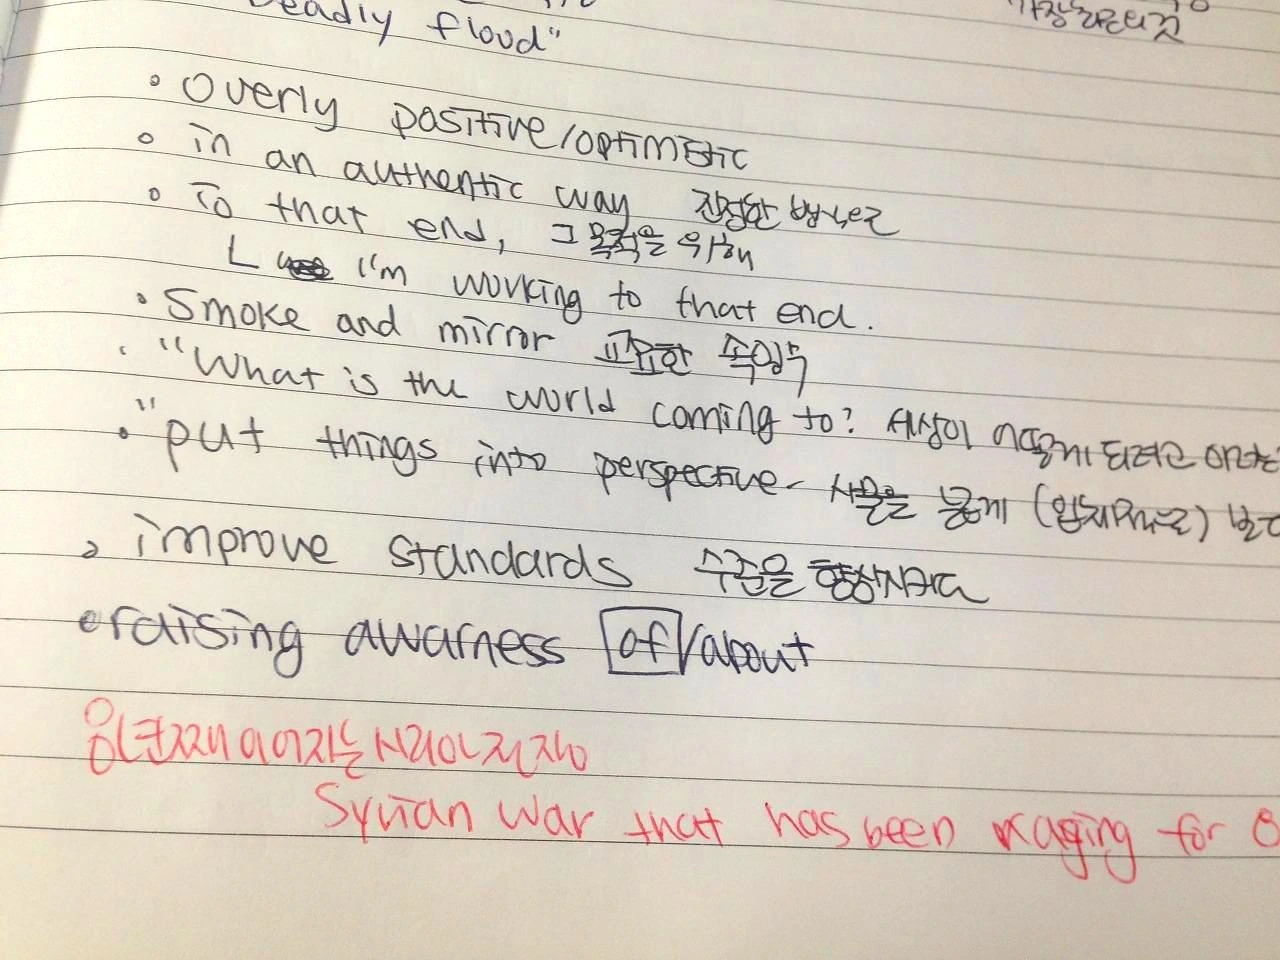 Deadly floud"
◦ Overly positive/optimistic
◦ in an authentic way 진정한 방식으로
◦ To that end, 그 목적을 위해
L I'm working to that end.
• Smoke and mirror 교묘한 속임수
"What is the world coming to? 세상이 어떻게 되려고
"put things into perspective- 사물을 넓게
◦ improve standards 수준을 향상시키다
• raising awarness of/about
8년째 이어지는 시리아 전쟁
Syrian war that has been raging for 8